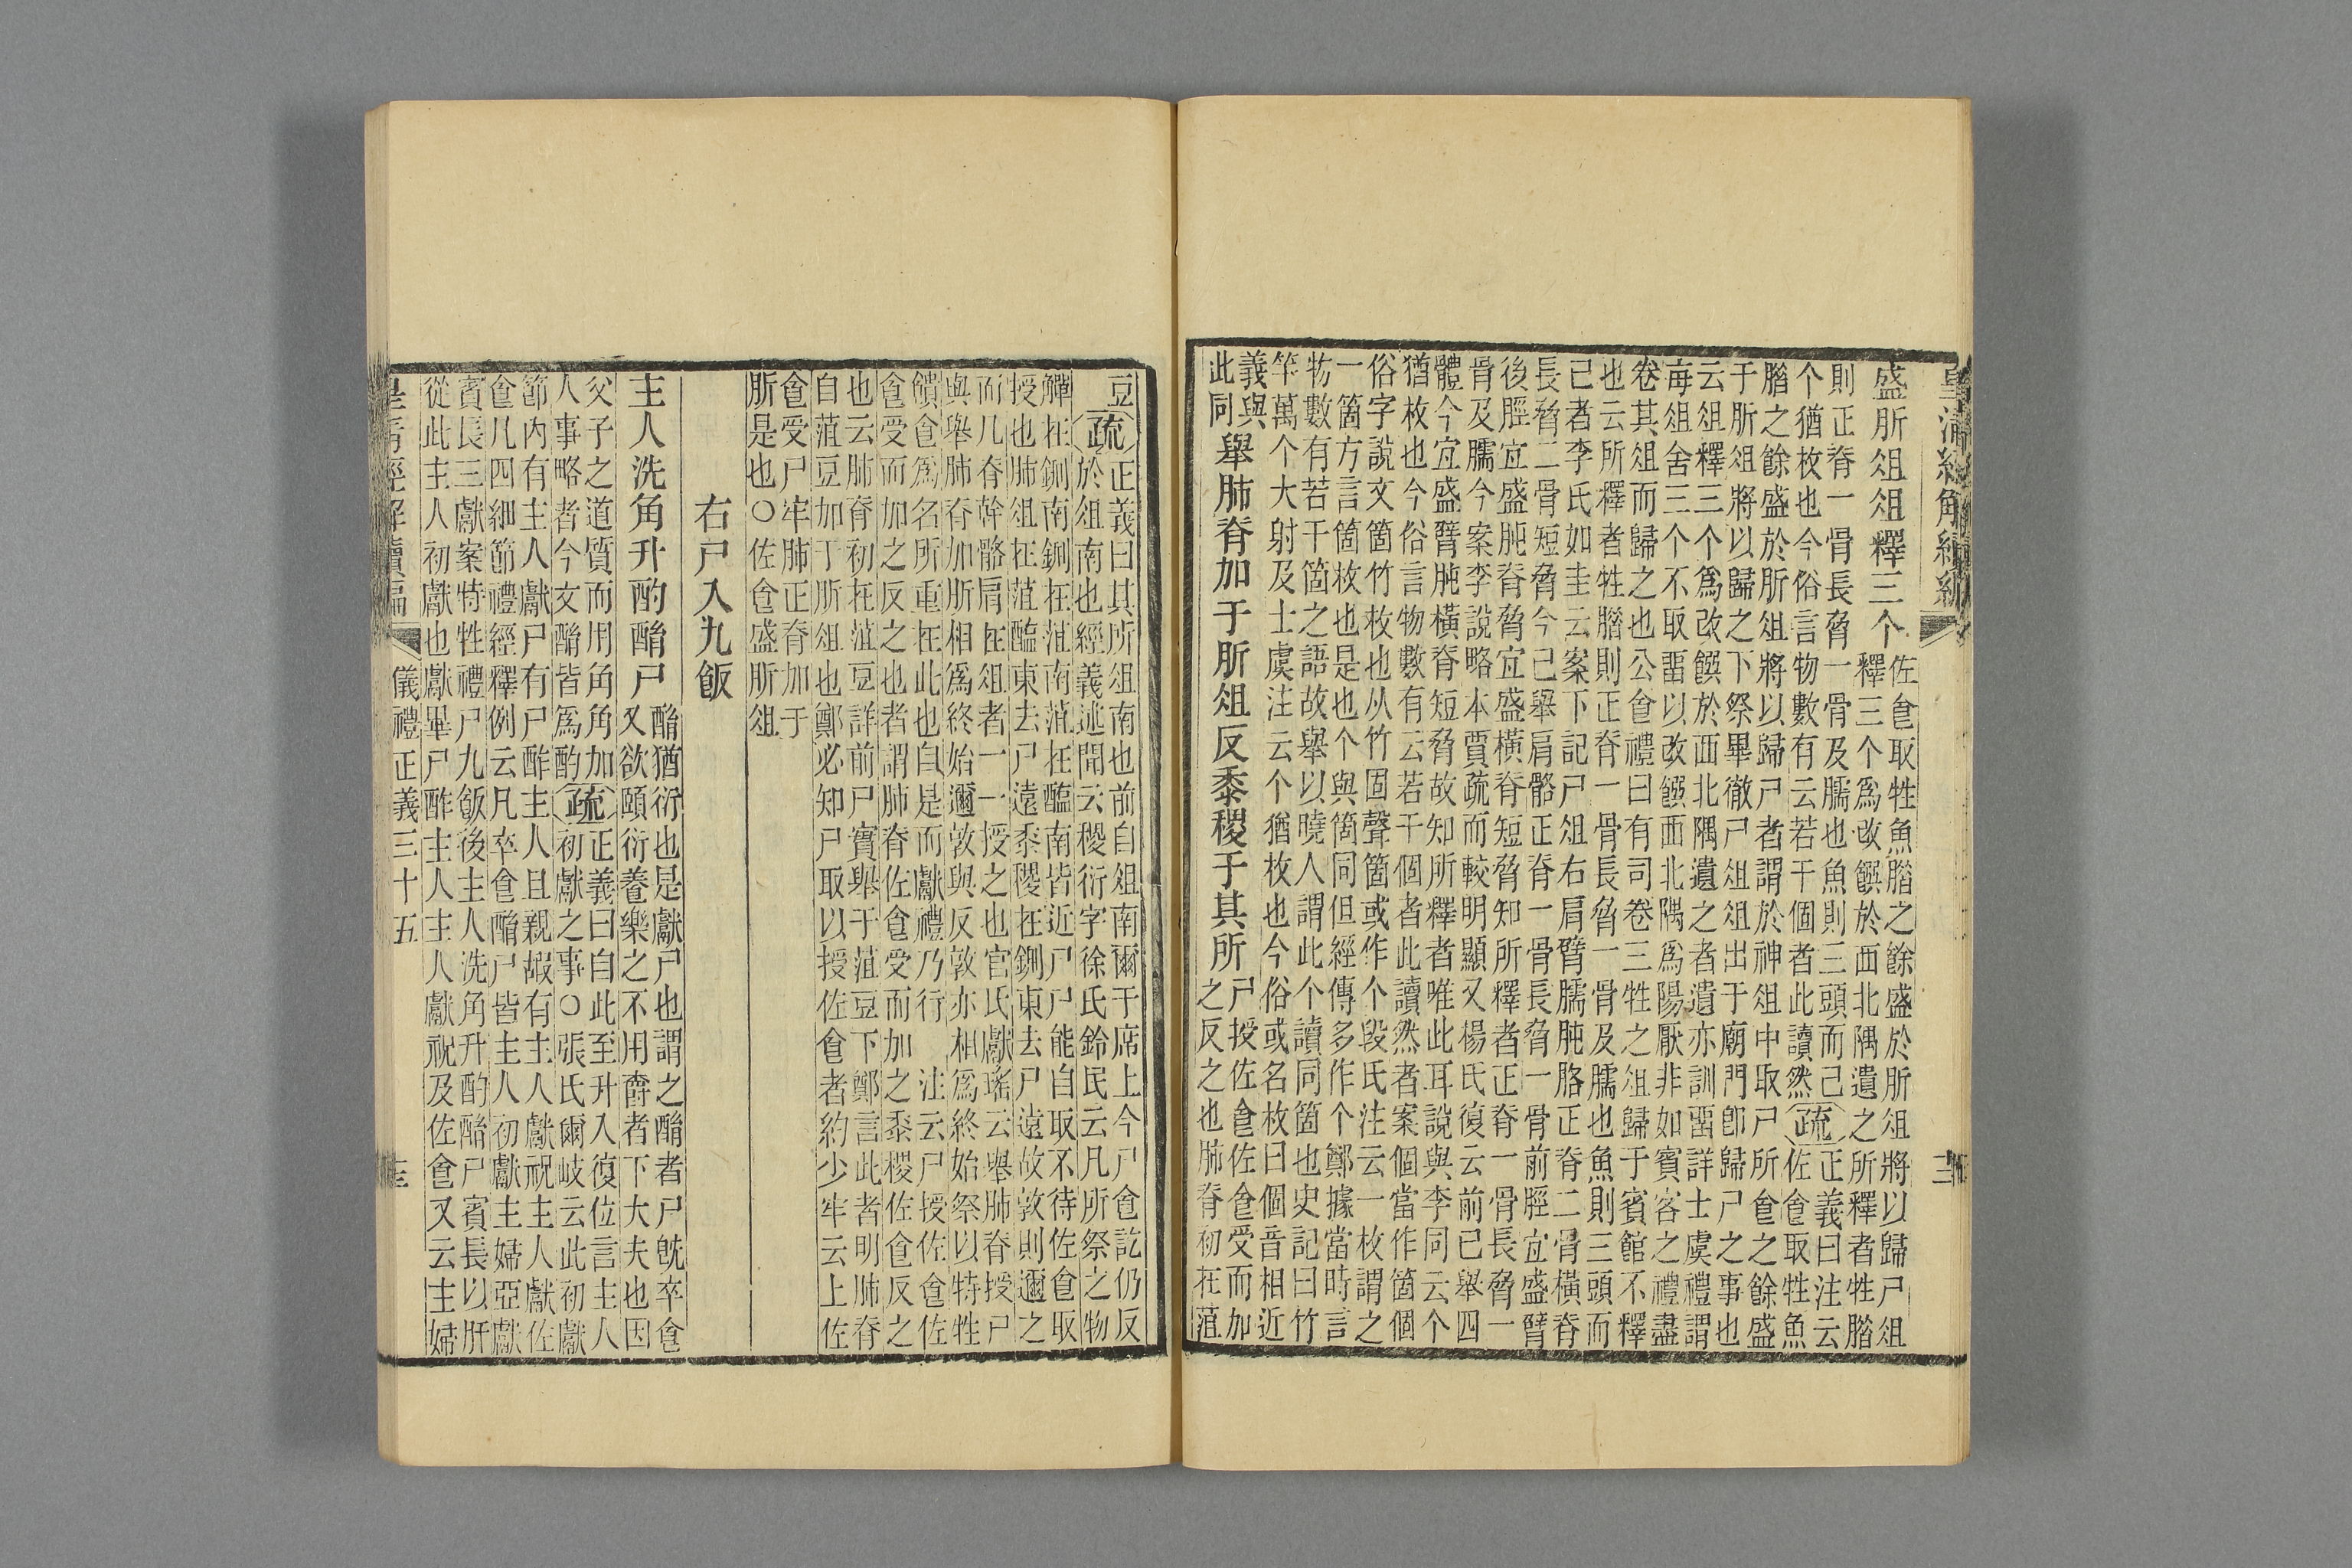 盛肵俎俎釋三个佐食取牲魚腊之餘盛於肵俎將以歸尸俎
釋三个爲改饌於西北隅遺之所釋者牲腊
則正脊一骨長脅一骨及臑也魚則三頭而已疏正義曰注云
个猶枚也今俗言物數有云若干個者此讀然佐食取牲魚
腊之餘盛於肵俎將以歸尸者謂於神俎中取尸所食之餘盛
于肵俎將以歸之下祭畢徹尸俎俎出于廟門卽歸尸之事也
云俎釋三个爲改饌於西北隅遺之者遺亦訓畱詳士虞禮謂
每俎舍三个不取畱以改饌西北隅爲陽厭非如賓客之禮盡
卷其俎而歸之也公食禮曰有司卷三牲之俎歸于賓館不釋
也云所釋者牲腊則正脊一骨長脅一骨及臑也魚則三頭而
已者李氏如圭云案下記尸俎右肩臂臑肫胳正脊二骨橫脊
長脅二骨短脅今已舉肩骼正脊一骨長脅一骨前脛宜盛臂
後脛宜盛肫脊脅宜盛橫脊短脅知所釋者正脊一骨長脅一
骨及臑今案李說略本賈疏而較明顯又楊氏復云前已舉四
體今宜盛臂肫橫脊短脅故知所釋者唯此耳說與李同云个
猶枚也今俗言物數有云若干個者此讀然者案個當作箇個
俗字說文箇竹枚也从竹固聲箇或作个毁氏注云一枚謂之
一箇方言箇枚也是也个與箇同但經傳多作个鄭據當時言
物數有若干箇之語故舉以曉人謂此个讀同箇也史記曰竹
竿萬个大射及士虞注云个猶枚也今俗或名枚曰個音相近
義與
此同舉肺脊加于肵俎反黍稷于其所尸授佐食佐食受而加
之反之也肺脊初在菹
豆疏正義曰其所俎南也前自俎南爾于席上今尸食訖仍反
於俎南也經義述聞云稷衍字徐氏鈴民云凡所祭之物
觶在鉶南鉶在菹南菹在醢南皆近尸尸能自取不待佐食取
授也肺俎在菹醢東去尸遠黍稷在鉶東去尸遠故敦則邇之
而凡脊幹骼肩在俎者一一授之也官氏獻瑤云舉肺脊授尸
與舉肺脊加肵相爲終始邇敦與反敦亦相爲終始祭以特牲
饋食爲名所重在此也自是而獻禮乃行　注云尸授佐食佐
食受而加之反之也者謂肺脊佐食受而加之黍稷佐食反之
也云肺脊初在菹豆詳前尸實舉于菹豆下鄭言此者明肺脊
自菹豆加于肵俎也鄭必知尸取以授佐食者約少牢云上佐
食受尸牢肺正脊加于
肵是也○佐食盛肵俎
右尸入九飯
主人洗角升酌酳尸酳猶衍也是獻尸也謂之酳者尸旣卒食
又欲頤衍養樂之不用爵者下大夫也因
父子之道質而用角角加疏正義曰自此至升入復位言主人
人事略者今文酳皆爲酌初獻之事○張氏爾岐云此初獻
節內有主人獻尸有尸酢主人且親嘏有主人獻祝主人獻佐
食凡四細節禮經釋例云凡卒食酳尸皆主人初獻主婦亞獻
賓長三獻案特牲禮尸九飯後主人洗角升酌酳尸賓長以肝
從此主人初獻也獻畢尸酢主人主人獻祝及佐食又云主婦
皇淸經解續編　儀禮正義三十五